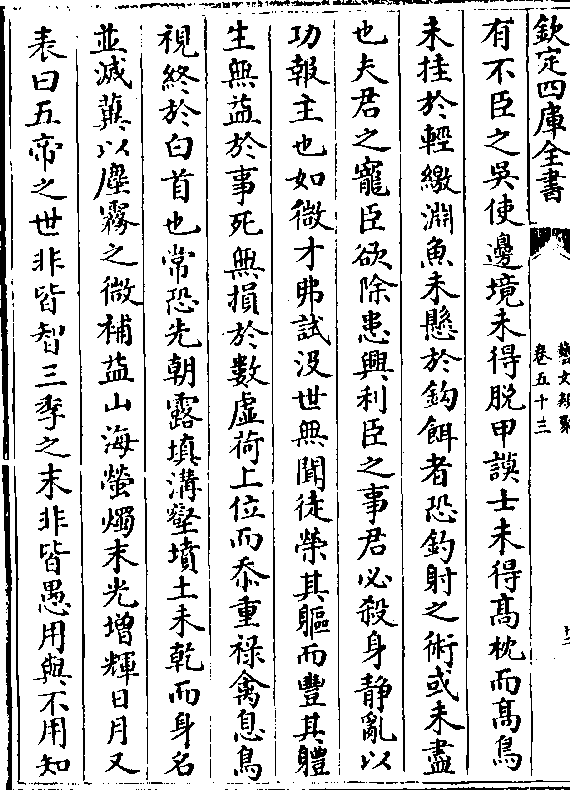 欽定四庫全書
藝文類聚
卷五十三
有不臣之吳使邊境未得脫甲謨士未得髙枕而髙鳥
未挂於輕繳淵魚未懸於鈎餌者恐釣射之術或未盡
也夫君之寵臣欲除患興利臣之事君必殺身静亂以
功報主也如微才弗試没世無聞徒榮其軀而豐其軆
生無益於事死無損於數虛荷上位而忝重禄禽息鳥
視終於白首也常恐先朝露填溝壑墳土未乾而身名
並滅蓂以塵霧之微補益山海螢燭末光增輝日月又
表曰五帝之世非皆智三季之末非皆愚用與不用知